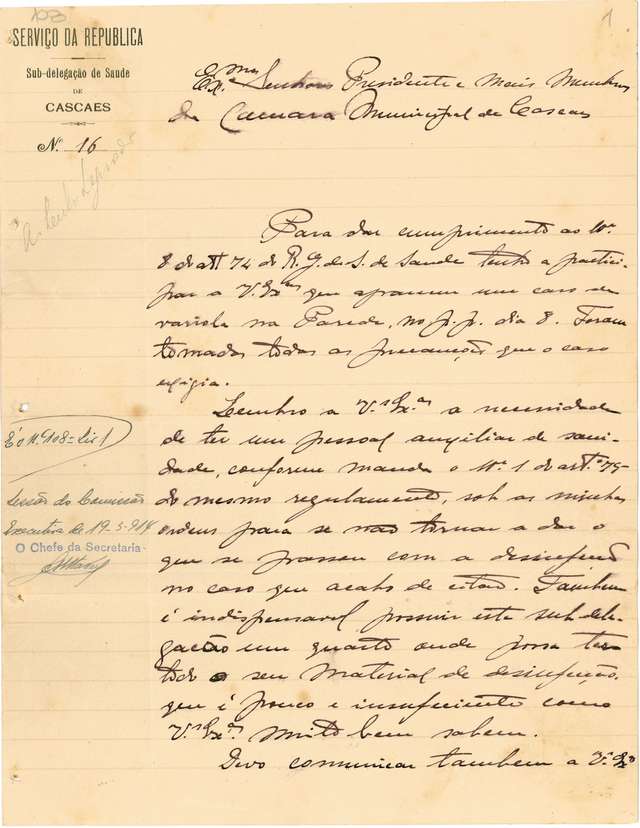 103
1
SERVIÇO DA REPUBLICA
Sub-delegação de Saude
DE
CASCAES
N.º 16
Ex.mos Senhores Presidente e Mais Membros
da Camara Municipal de Cascaes
Para dar cumprimento ao N.º
8 do artº 74 do R. G. dos S. de Saude tenho a partici-
par a V.as Ex.as que appareceu um caso de
variola na Parede, no p.p. dia 8. Foram
tomadas todas as precauções que o caso
exigia.
Lembro a V.as Ex.as a necessidade
de ter um pessoal auxiliar de sani-
dade, conforme manda o N.º 1 do artº 75
do mesmo regulamento, sob as minhas
ordens para se não tornar a dar o
que se passou com a desinfeção
no caso que acabo de citar. Tambem
é indispensavel possuir esta sub-dele-
gação um quarto onde possa ter
todo o seu material de desinfecção,
que é pouco e insuficiente como
V.as Ex.as muito bem sabem.
Devo comunicar tambem a V.as Ex.as
É o nº 108 = Liv 1
Sessão da Comissão
Executiva de 19-5-914
O Chefe da Secretaria